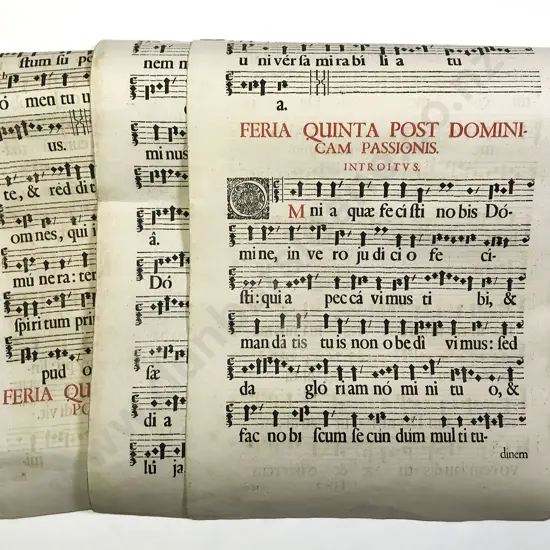 ſtum ſu pe
ó men tu u
us.
te, & réd di t
om nes, qui i
mú ne ra: ter
ſpiritum prin
pud o
FERIA QU
PO
nem m
mi nus
â.
Dó
ſæ
di a
lú ja
u ni vér ſa mi ra bí li a tu
a.
FERIA QUINTA POST DOMINI-
CAM PASSIONIS.
INTROITVS.
O M ni a quæ fe cí ſti no bis Dó-
mi ne, in ve ro ju dí ci o fe cí-
ſti: qui a pec cá vi mus ti bi, &
man dá tis tu is non o be dí vi mus: ſed
da gló ri am nó mi ni tu o, &
fac no bí ſcum ſe cún dùm mul ti tu-
dinem